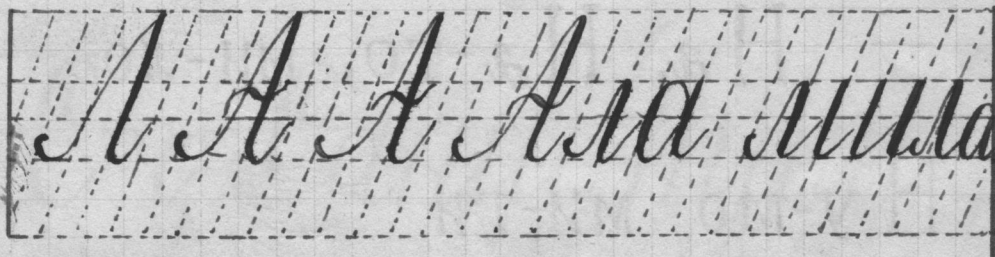 Л А А Ала мила